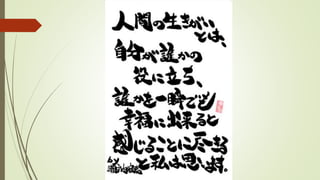 人間の生きがい
とは、
自分が誰かの
役に立ち、
誰かを一瞬でも
幸福に出来ると
感じることに尽きる
と私は思います。